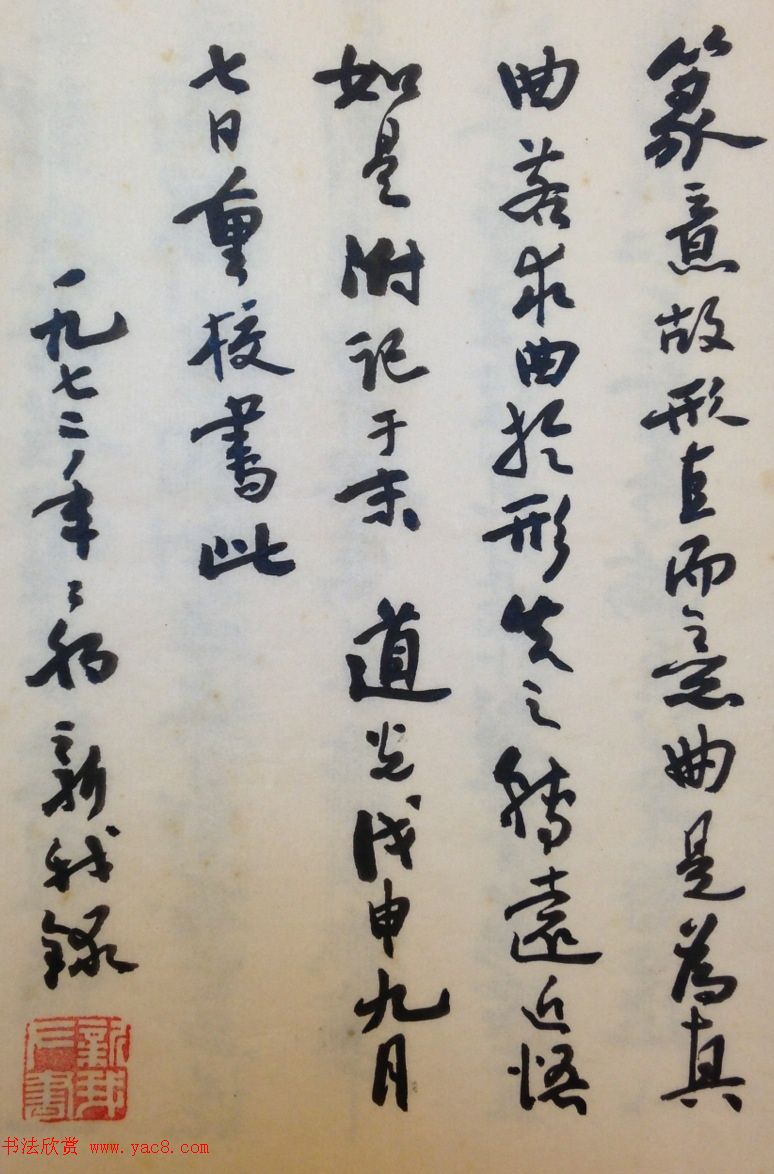 篆意故形直而意曲是為真
曲若求曲於形失之轉遠近悟
如是附記于末 道光戊申九月
七日重校書此
一九七二年々初新我錄
新我左書
书法欣赏 www.yac8.com